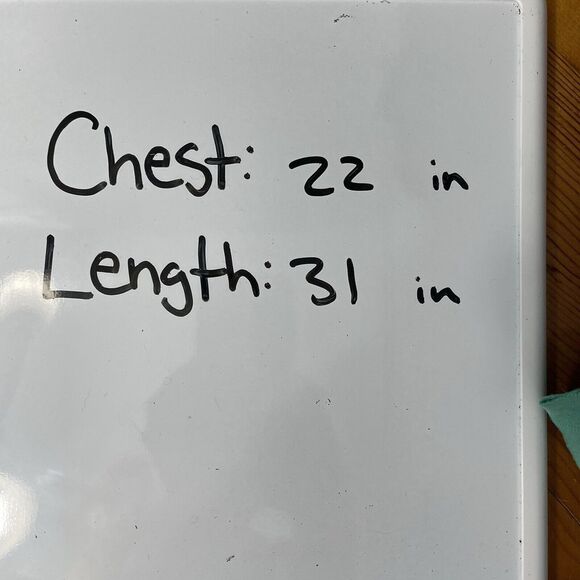 Chest: 22 in
Length: 31 in